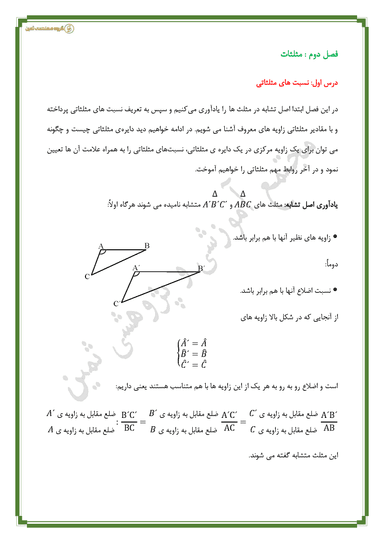 گروه مهندسی ثمین
فصل دوم : مثلثات
درس اول: نسبت های مثلثاتی
در این فصل ابتدا اصل تشابه در مثلث ها را یادآوری می کنیم و سپس به تعریف نسبت های مثلثاتی پرداخته
و با مقادیر مثلثاتی زاویه های معروف آشنا می شویم. در ادامه خواهیم دید دایره‌ی مثلثاتی چیست و چگونه
می توان برای یک زاویه مرکزی در یک دایره ی مثلثاتی، نسبت‌های مثلثاتی را به همراه علامت آن ها تعیین
نمود و در آخر روابط مهم مثلثاتی را خواهیم آموخت.
Δ Δ
یادآوری اصل تشابه: مثلث های ABC و A´B´C´ متشابه نامیده می شوند هرگاه اولاً:
● زاویه های نظیر آنها با هم برابر باشد.
A B
دوماً:
A´ B´
C
● نسبت اضلاع آنها با هم برابر باشد.
C´
از آنجایی که در شکل بالا زاویه های
Â´ = Â
B̂´ = B̂
Ĉ´ = Ĉ
است و اضلاع رو به رو به هر یک از این زاویه ها با هم متناسب هستند یعنی داریم:
A´B´ ضلع مقابل به زاویه ی C´ = A´C´ ضلع مقابل به زاویه ی B´ = B´C´ ضلع مقابل به زاویه ی A´
AB ضلع مقابل به زاویه ی C AC ضلع مقابل به زاویه ی B BC : ضلع مقابل به زاویه ی A
این مثلث متشابه گفته می شوند.
مجتمع آموزشی و پژوهشی ثمین